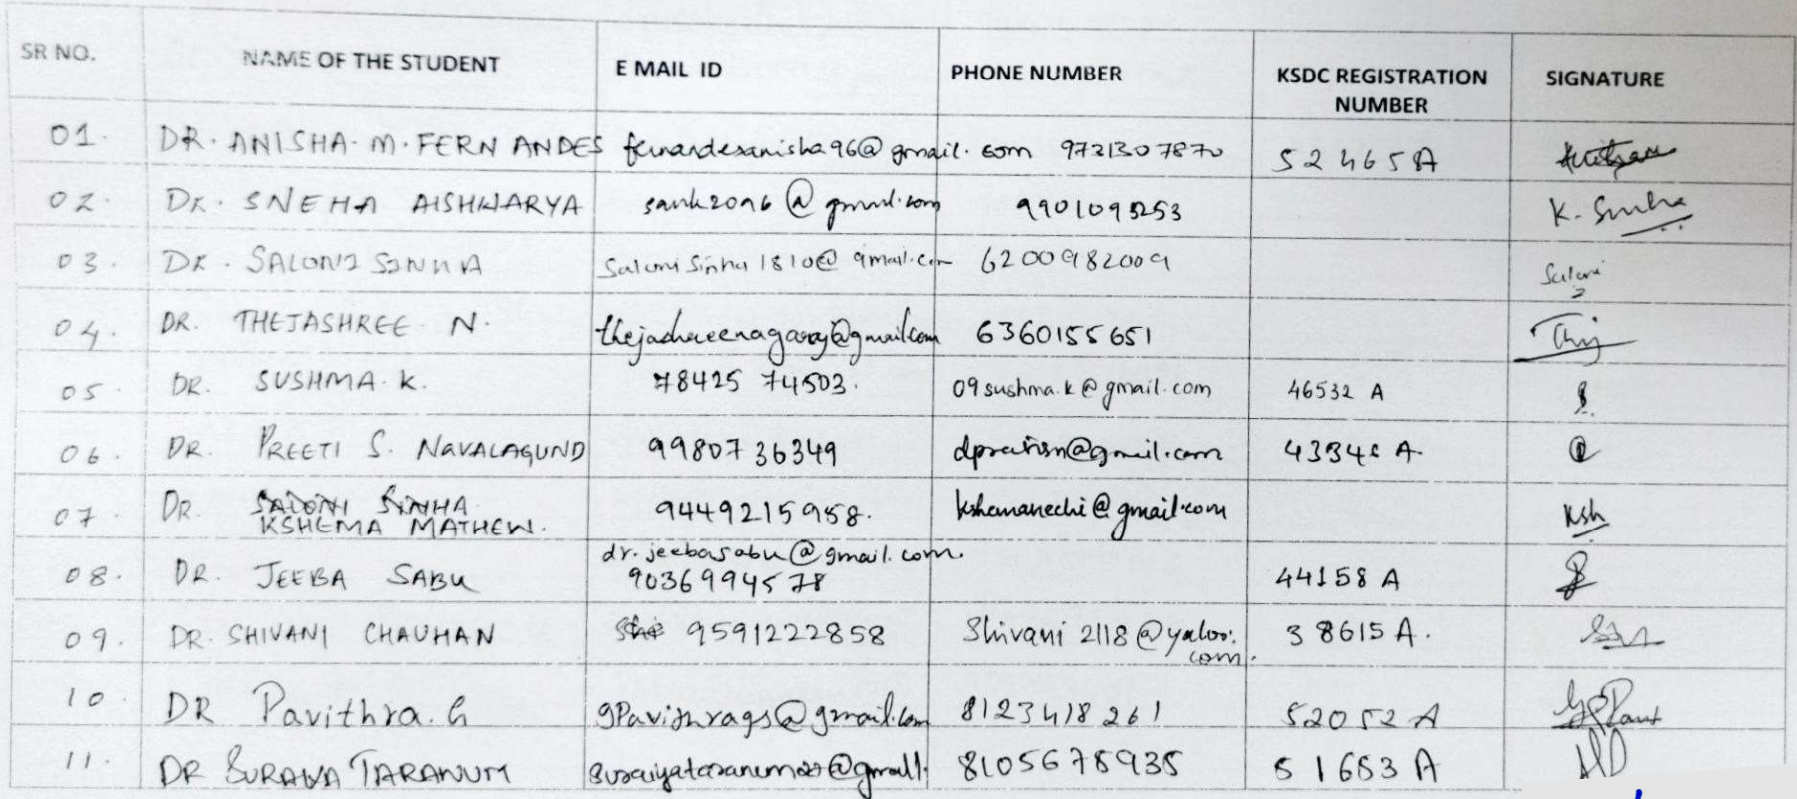 SR NO. NAME OF THE STUDENT E MAIL ID PHONE NUMBER KSDC REGISTRATION NUMBER SIGNATURE
01. DR. ANISHA. M. FERNANDES fernandesanisha96@gmail.com 9731307870 52465A
02. DR. SNEHA AISHWARYA K. Sneha
03. DR. SALONI SINHA Salonisinha1810@gmail.com 6200982009 Saloni
04. DR. THEJASHREE N. thejashreenagaraj@gmail.com 6360155651 Thej
05. DR. SUSHMA. K. 78425 74503. 09sushma.k@gmail.com 46532 A
06. DR. PREETI S. NAVALAGUND 99807 36349
07. DR. SALONI SINHA
KSHEMA MATHEW. 9449215958. kshemanechi@gmail.com Ksh
08. DR. JEEBA SABU dr.jeebasabu@gmail.com.
9036994578 44158 A
09. DR. SHIVANI CHAUHAN She 9591222858 Shivani2118@yahoo.
com. 38615 A.
10. DR Pavithra. G gpavithrags@gmail.com 8123418261 52052 A
11. DR SURAIYA TARANUM 8105675935 51653 A